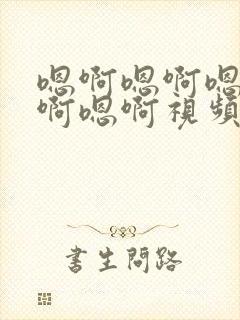 嗯啊嗯啊嗯
啊嗯啊視頻
書生問路